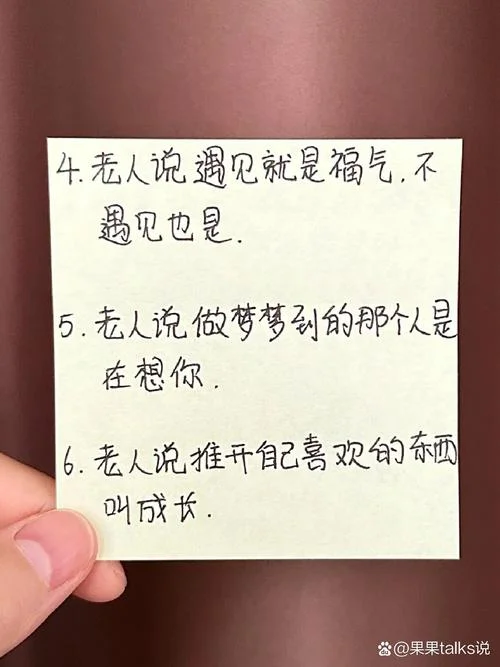 4. 老人说遇见就是福气, 不
遇见也是.
5. 老人说做梦梦到的那个人是
在想你.
6. 老人说推开自己喜欢的东西
叫成长.
@果果talks说